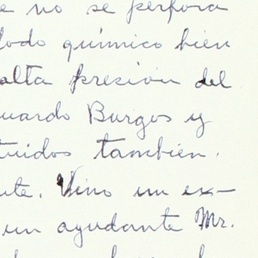 e no se perfora
lodo químico bien
alta presión del
uardo Burgos y
uidos también.
te. Vino un ex-
un ayudante Mr.